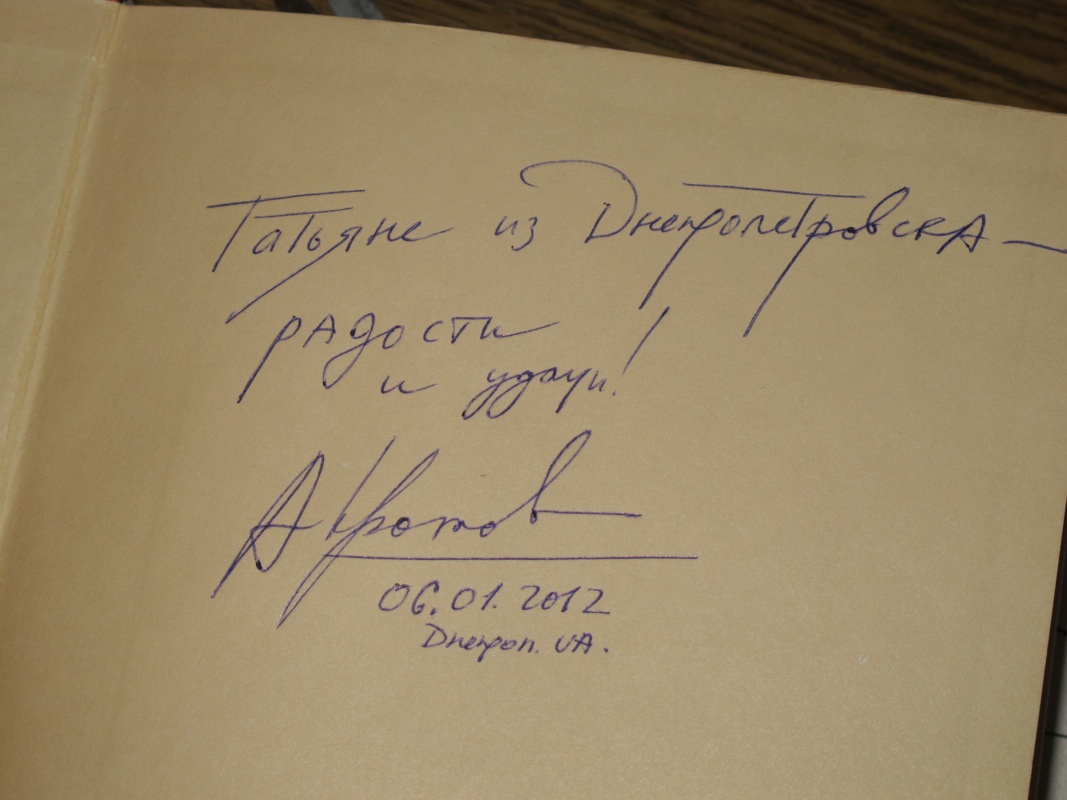 Татьяне из Днепропетровска —
радости
и удачи!
А Кротов
06.01.2012
Днепроп. UA.